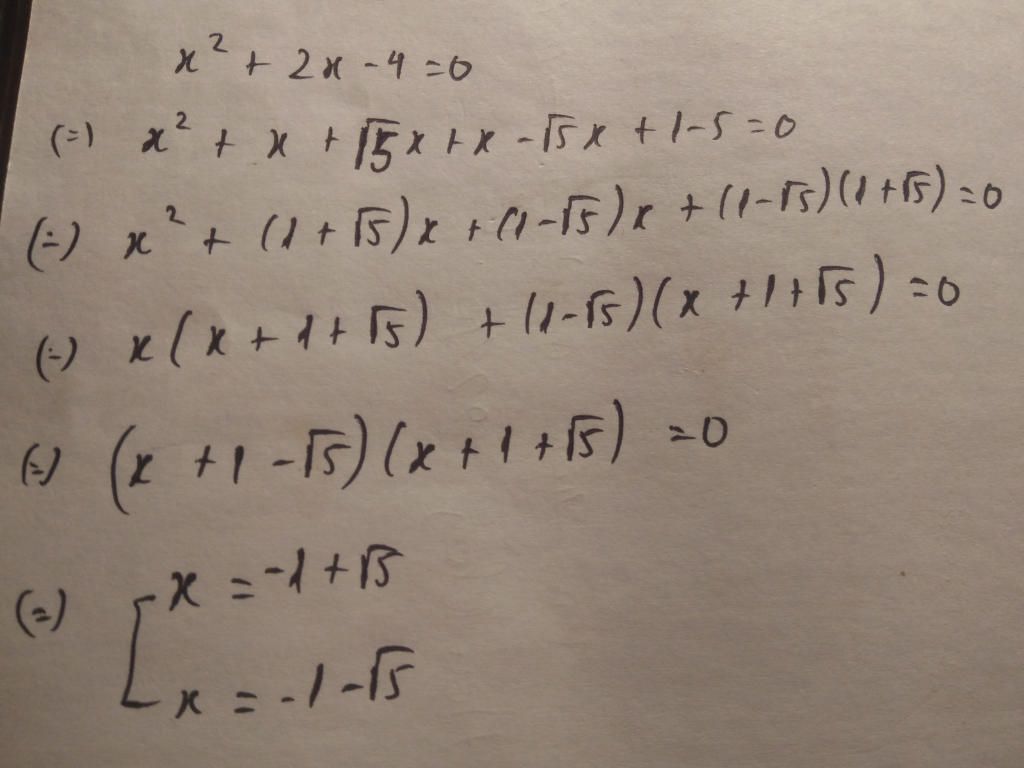 x² + 2x - 4 = 0
(=) x² + x + √5x + x - √5x + 1 - 5 = 0
(=) x² + (1 + √5)x + (1 - √5)x + (1 - √5)(1 + √5) = 0
(=) x(x + 1 + √5) + (1 - √5)(x + 1 + √5) = 0
(=) (x + 1 - √5)(x + 1 + √5) = 0
(=) [ x = -1 + √5
x = -1 - √5